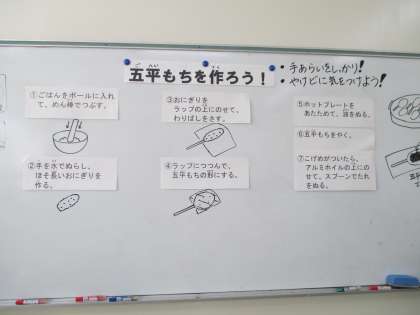 五平もちを作ろう！
・手あらいをしっかり！
・やけどに気をつけよう！
①ごはんをボールに入れ
て、めん棒でつぶす。
②手を水でぬらし、
ほそ長いおにぎりを
作る。
③おにぎりを
ラップの上にのせて、
わりばしをさす。
④ラップにつつんで、
五平もちの形にする。
⑤ホットプレートを
あたためて、油をぬる。
⑥五平もちをやく。
⑦こげめがついたら、
アルミホイルの上にの
せて、スプーンでたれ
をぬる。